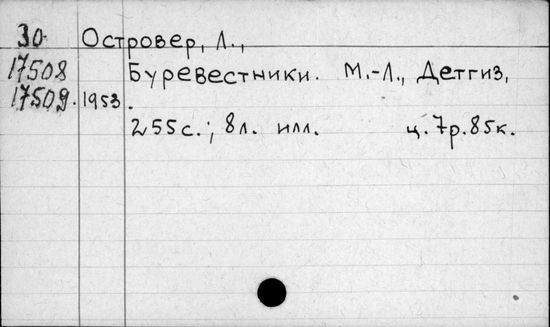 30. Островер, Л.,
17508 Буревестники. М.-Л., Детгиз,
17509. 1953.
255с.; 8л. илл. ц. 7р. 85к.